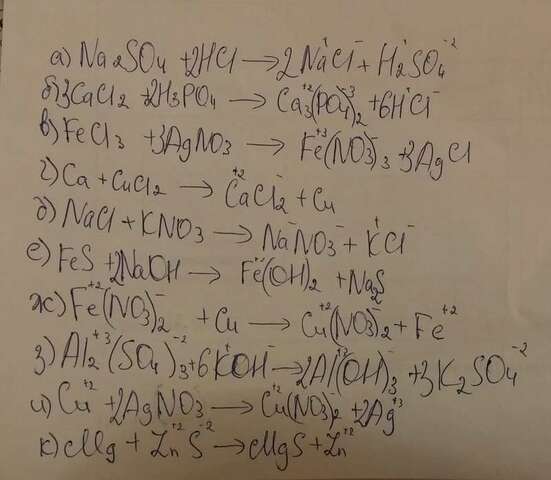 а) Na₂SO₄ + 2HCl → 2Na⁺Cl⁻ + H₂⁺SO₄⁻²
б) 3CaCl₂ + 2H₃PO₄ → Ca₃⁺²(PO₄)₂⁻³ + 6H⁺Cl⁻
в) FeCl₃ + 3AgNO₃ → Fe⁺³(NO₃)⁻₃ + 3AgCl
г) Ca + CuCl₂ → Ca⁺²Cl₂⁻ + Cu
д) NaCl + KNO₃ → Na⁻NO₃⁻ + K⁺Cl⁻
е) FeS + 2NaOH → Fe⁺²(OH)₂⁻ + Na₂S
ж) Fe⁺²(NO₃)₂⁻ + Cu → Cu⁺²(NO₃)₂⁻ + Fe⁺²
з) Al₂⁺³(SO₄)₃⁻² + 6K⁺OH⁻ → 2Al⁺³(OH)₃⁻ + 3K₂SO₄⁻²
и) Cu⁺² + 2AgNO₃ → Cu⁺²(NO₃)₂⁻ + 2Ag⁺³
к) Mg + Zn⁺²S⁻² → MgS + Zn⁺²